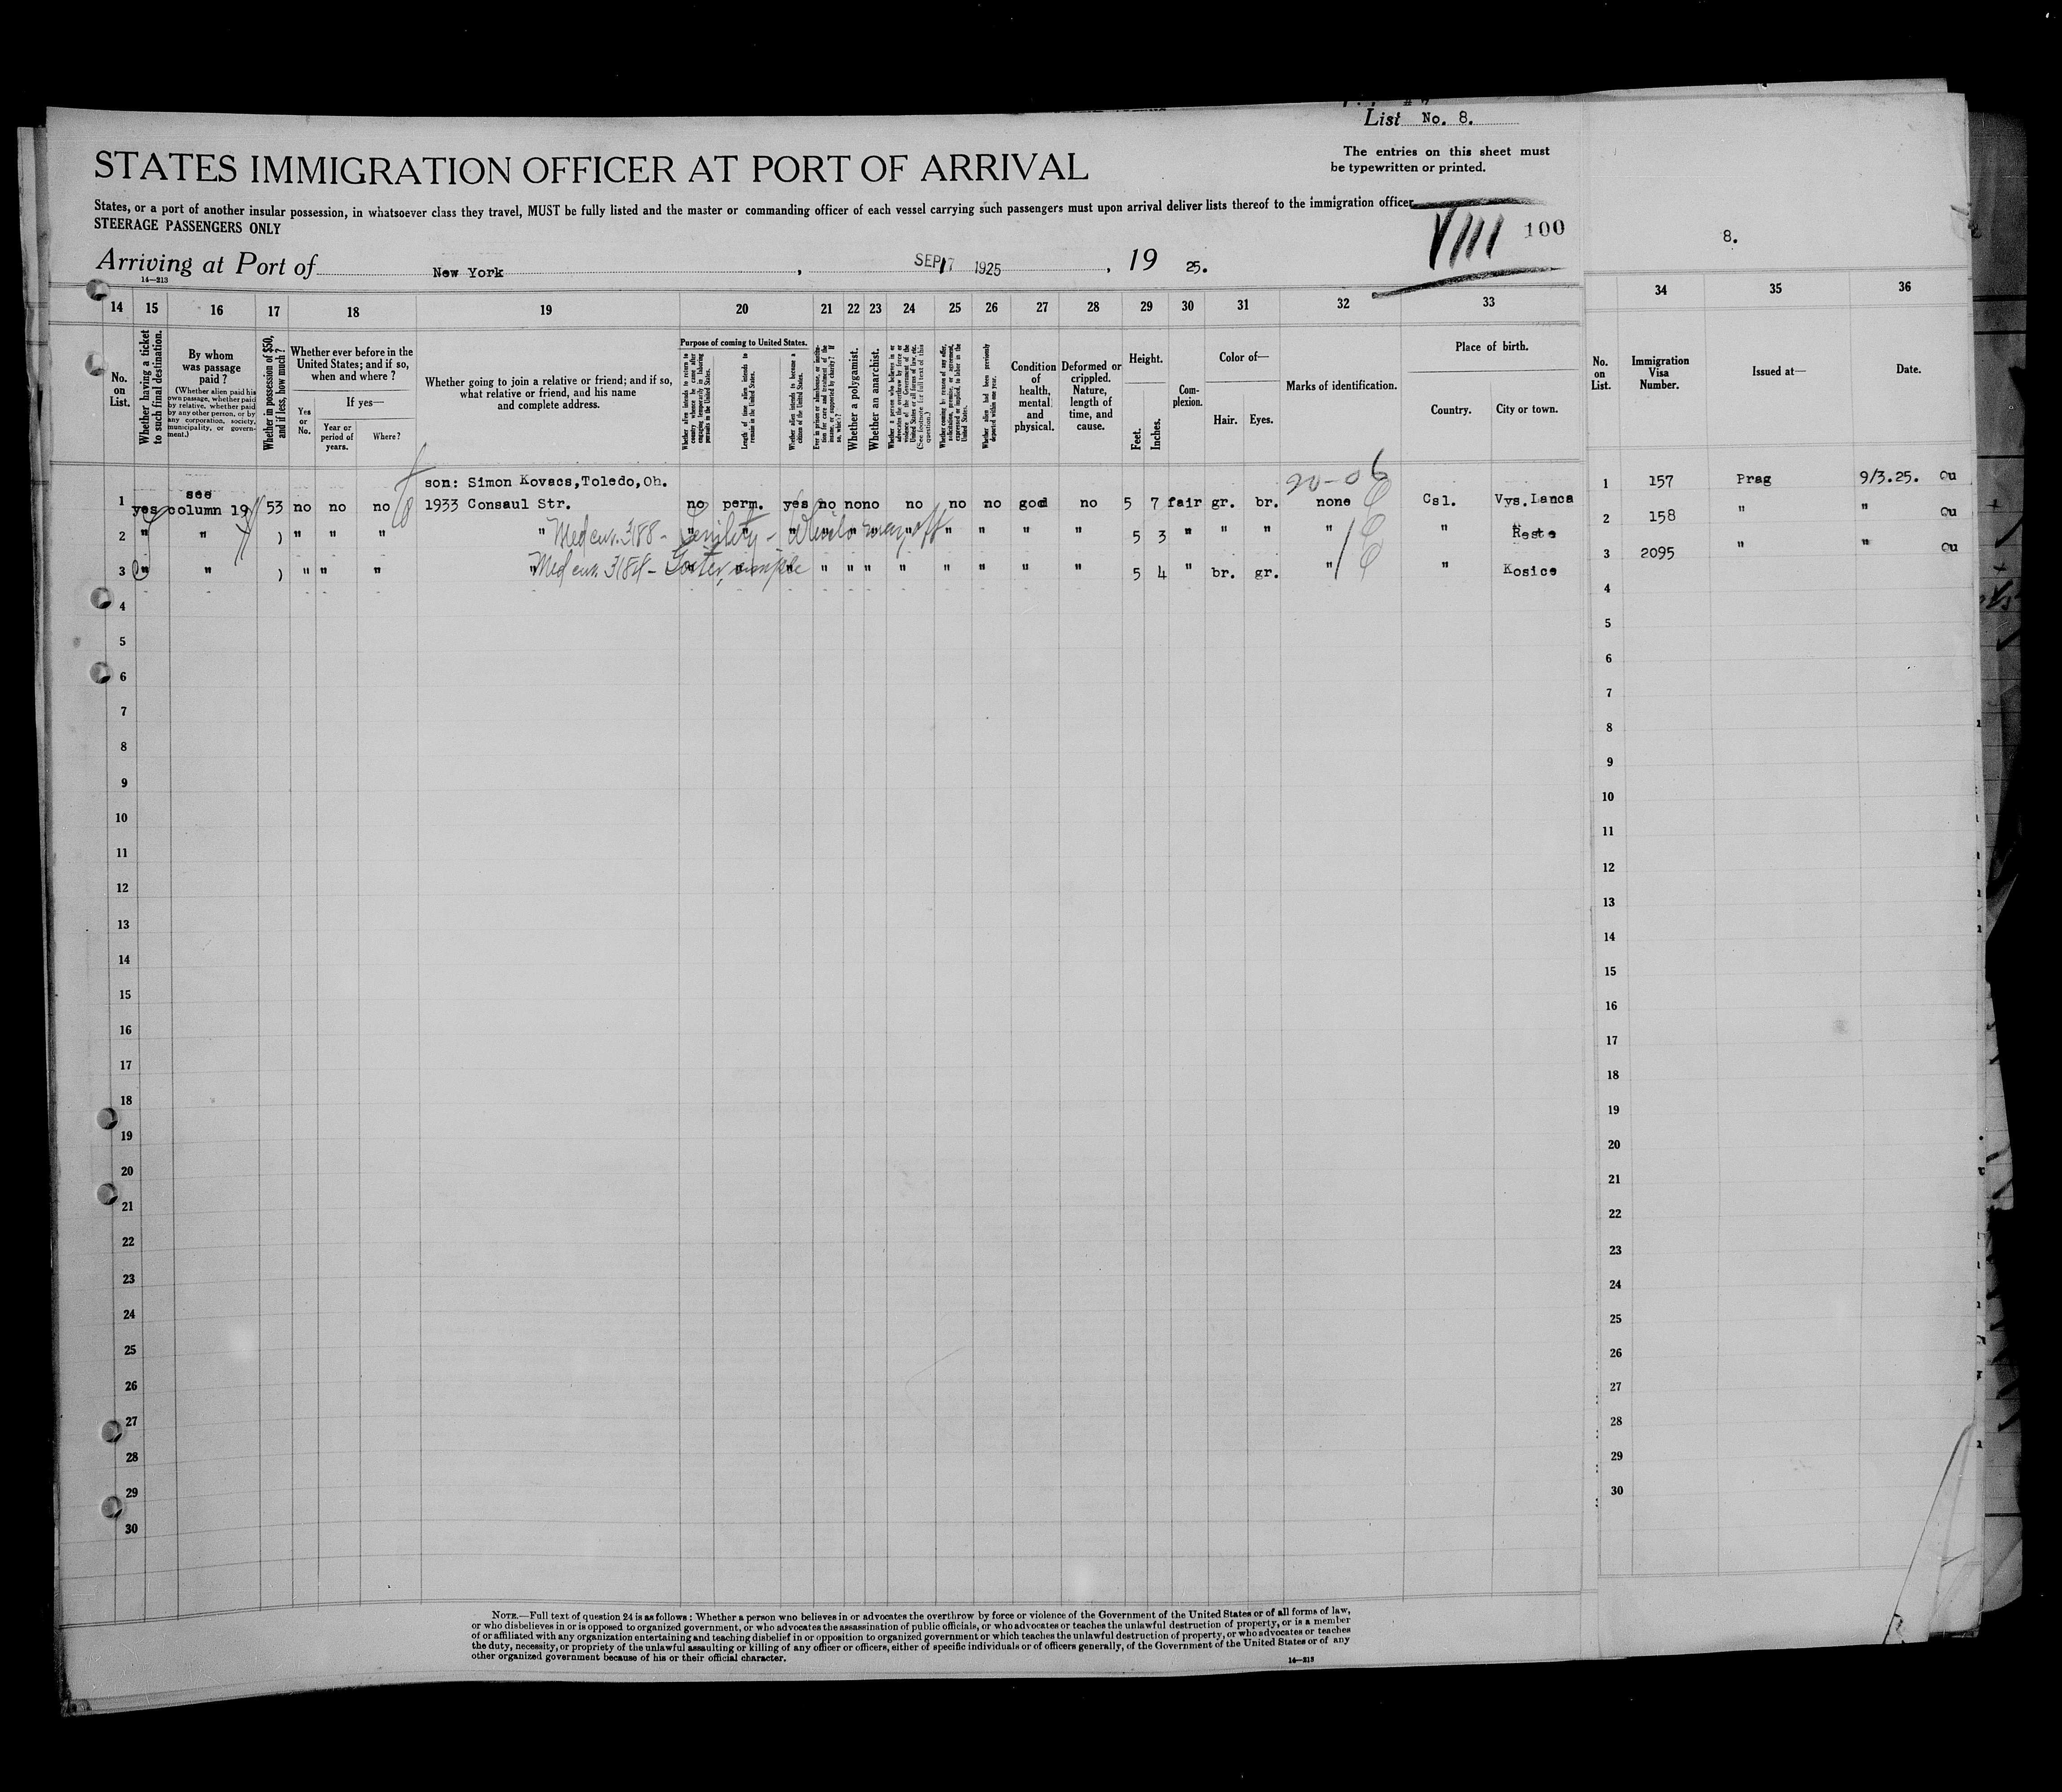 List No. 8.
STATES IMMIGRATION OFFICER AT PORT OF ARRIVAL
The entries on this sheet must
be typewritten or printed.
States, or a port of another insular possession, in whatsoever class they travel, MUST be fully listed and the master or commanding officer of each vessel carrying such passengers must upon arrival deliver lists thereof to the immigration officer
STEERAGE PASSENGERS ONLY
VIII 100
8.
Arriving at Port of New York, SEP 17 1925, 19 25.
14-213
14 15 16 17 18 19 20 21 22 23 24 25 26 27 28 29 30 31 32 33 34 35 36
No. on List.
Whether having a ticket to such final destination.
By whom was passage paid?
(Whether alien paid his own passage, whether paid by relative, whether paid by any other person, or by any corporation, society, municipality, or government.)
Whether in possession of $50, and if less, how much?
Whether ever before in the United States; and if so, when and where?
Yes or No.
If yes—
Year or period of years.
Where?
Whether going to join a relative or friend; and if so, what relative or friend, and his name and complete address.
Purpose of coming to United States.
Whether alien intends to return to country whence he came after engaging temporarily in laboring pursuits in the United States.
Length of time alien intends to remain in the United States.
Whether alien intends to become a citizen of the United States.
Ever in prison or almshouse, or institution for care and treatment of the insane, or supported by charity? If so, which?
Whether a polygamist.
Whether an anarchist.
Whether a person who believes in or advocates the overthrow by force or violence of the Government of the United States or all forms of law, etc. (See footnote for full text of this question.)
Whether coming by reason of any offer, solicitation, promise, or agreement, expressed or implied, to labor in the United States.
Whether alien had been previously deported within one year.
Condition of health, mental and physical.
Deformed or crippled. Nature, length of time, and cause.
Height.
Feet. Inches.
Complexion.
Color of—
Hair. Eyes.
Marks of identification.
Place of birth.
Country. City or town.
No. on List.
Immigration Visa Number.
Issued at—
Date.
son: Simon Kovacs,Toledo,Oh. 20-06
1 yes see column 19 53 no no no 1933 Consaul Str. no perm. yes no no no no no no good no 5 7 fair gr. br. none Csl. Vys.Lanca 1 157 Prag 9/3.25. Qu
2 " " ) " " " " Med cer. 3188 - Senility - " " " " " " " " " " " 5 3 " " " " " Reste 2 158 " " Qu
3 " " ) " " " " Med cer. 3184 - Goiter, simple " " " " " " " " " " " 5 4 " br. gr. " " Kosice 3 2095 " " Qu
4 4
5 5
6 6
7 7
8 8
9 9
10 10
11 11
12 12
13 13
14 14
15 15
16 16
17 17
18 18
19 19
20 20
21 21
22 22
23 23
24 24
25 25
26 26
27 27
28 28
29 29
30 30
NOTE.—Full text of question 24 is as follows: Whether a person who believes in or advocates the overthrow by force or violence of the Government of the United States or of all forms of law,
or who disbelieves in or is opposed to organized government, or who advocates the assassination of public officials, or who advocates or teaches the unlawful destruction of property, or is a member
of or affiliated with any organization entertaining and teaching disbelief in or opposition to organized government or which teaches the unlawful destruction of property, or who advocates or teaches
the duty, necessity, or propriety of the unlawful assaulting or killing of any officer or officers, either of specific individuals or of officers generally, of the Government of the United States or of any
other organized government because of his or their official character.
14-213